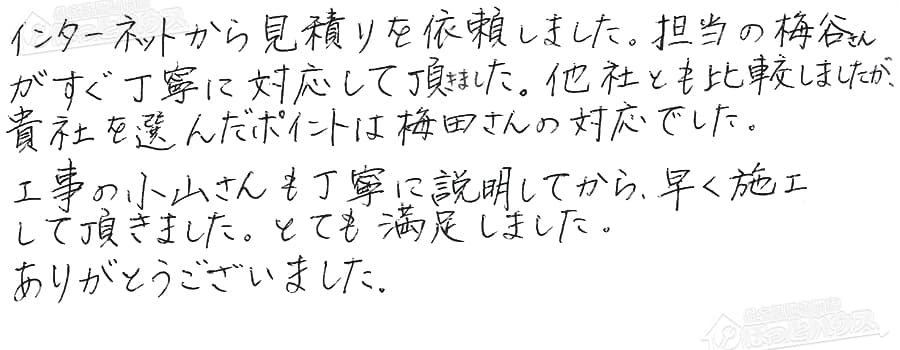 インターネットから見積りを依頼しました。担当の梅谷さん
がすぐ丁寧に対応して頂きました。他社とも比較しましたが、
貴社を選んだポイントは梅田さんの対応でした。
工事の小山さんも丁寧に説明してから、早く施工
して頂きました。とても満足しました。
ありがとうございました。